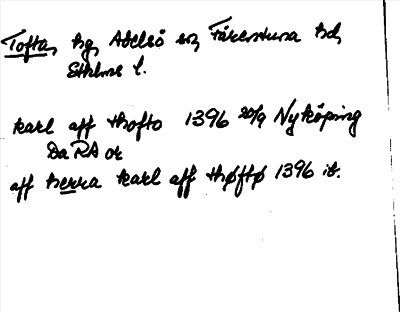 Tofta, hg, Adelsö sn, Färentuna hd,
Sthlms l.
karl aff thofto 1396 20/9 Nyköping
Da RA or
aff herra karl aff thøftø 1396 it.